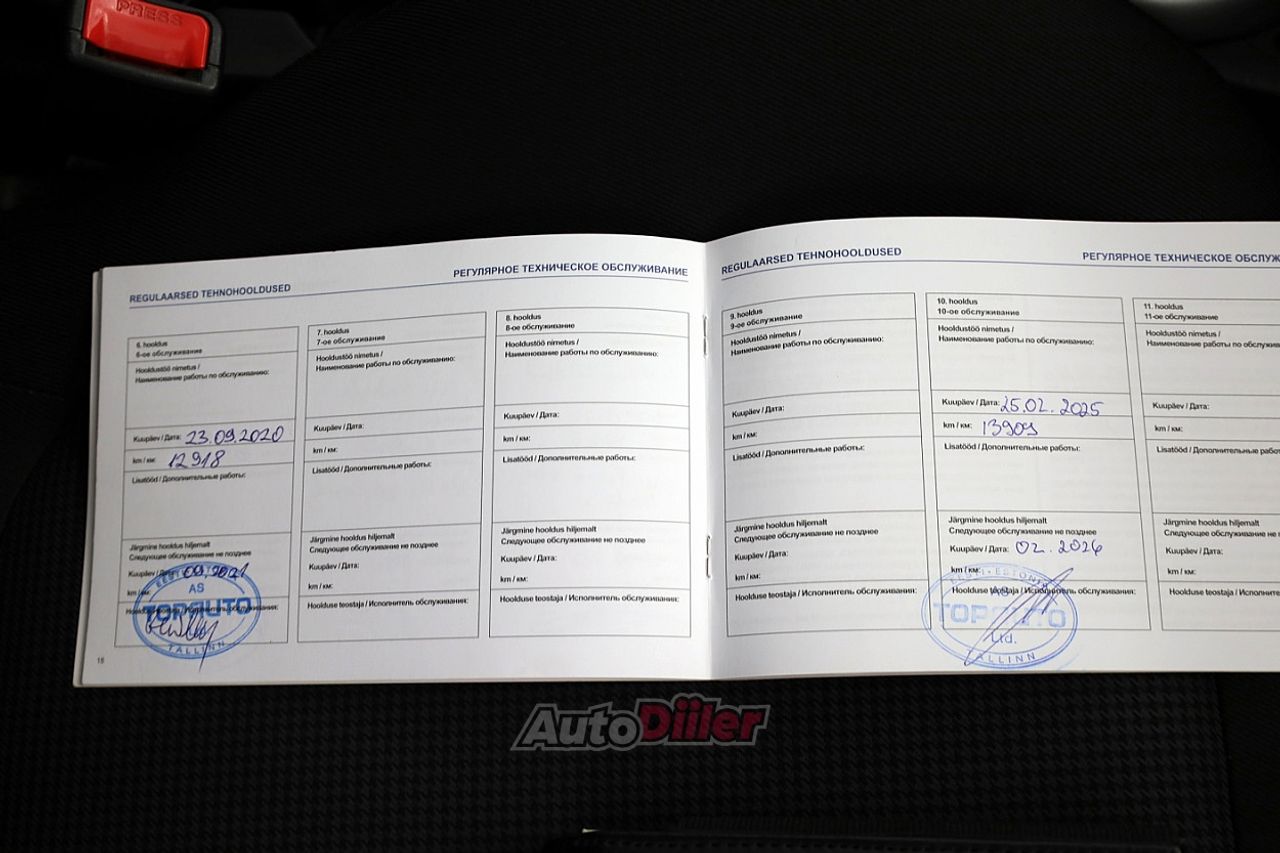 PRESS
REGULAARSED TEHNOHOOLDUSED
РЕГУЛЯРНОЕ ТЕХНИЧЕСКОЕ ОБСЛУЖИВАНИЕ
6. hooldus
6-ое обслуживание
Hooldustöö nimetus /
Наименование работы по обслуживанию:
Kuupäev / Дата: 23.09.2020
km / км: 12918
Lisatööd / Дополнительные работы:
Järgmine hooldus hiljemalt
Следующее обслуживание не позднее
Kuupäev / Дата: 09.2021
km / км:
Hoolduse teostaja / Исполнитель обслуживания:
EESTI - ESTONIA
AS
TOPAUTO
TALLINN
7. hooldus
7-ое обслуживание
Hooldustöö nimetus /
Наименование работы по обслуживанию:
Kuupäev / Дата:
km / км:
Lisatööd / Дополнительные работы:
Järgmine hooldus hiljemalt
Следующее обслуживание не позднее
Kuupäev / Дата:
km / км:
Hoolduse teostaja / Исполнитель обслуживания:
8. hooldus
8-ое обслуживание
Hooldustöö nimetus /
Наименование работы по обслуживанию:
Kuupäev / Дата:
km / км:
Lisatööd / Дополнительные работы:
Järgmine hooldus hiljemalt
Следующее обслуживание не позднее
Kuupäev / Дата:
km / км:
Hoolduse teostaja / Исполнитель обслуживания:
REGULAARSED TEHNOHOOLDUSED
РЕГУЛЯРНОЕ ТЕХНИЧЕСКОЕ ОБСЛУЖ
9. hooldus
9-ое обслуживание
Hooldustöö nimetus /
Наименование работы по обслуживанию:
Kuupäev / Дата:
km / км:
Lisatööd / Дополнительные работы:
Järgmine hooldus hiljemalt
Следующее обслуживание не позднее
Kuupäev / Дата:
km / км:
Hoolduse teostaja / Исполнитель обслуживания:
10. hooldus
10-ое обслуживание
Hooldustöö nimetus /
Наименование работы по обслуживанию:
Kuupäev / Дата: 25.02.2025
km / км: 13909
Lisatööd / Дополнительные работы:
Järgmine hooldus hiljemalt
Следующее обслуживание не позднее
Kuupäev / Дата: 02.2026
km / км:
Hoolduse teostaja / Исполнитель обслуживания:
EESTI - ESTONIA
AS
TOPAUTO
Ltd.
TALLINN
11. hooldus
11-ое обслуживание
Hooldustöö nimetus /
Наименование работы по обслужива
Kuupäev / Дата:
km / км:
Lisatööd / Дополнительные рабо
Järgmine hooldus hiljemalt
Следующее обслуживание не поз
Kuupäev / Дата:
km / км:
Hoolduse teostaja / Исполнитель о
AutoDiiler